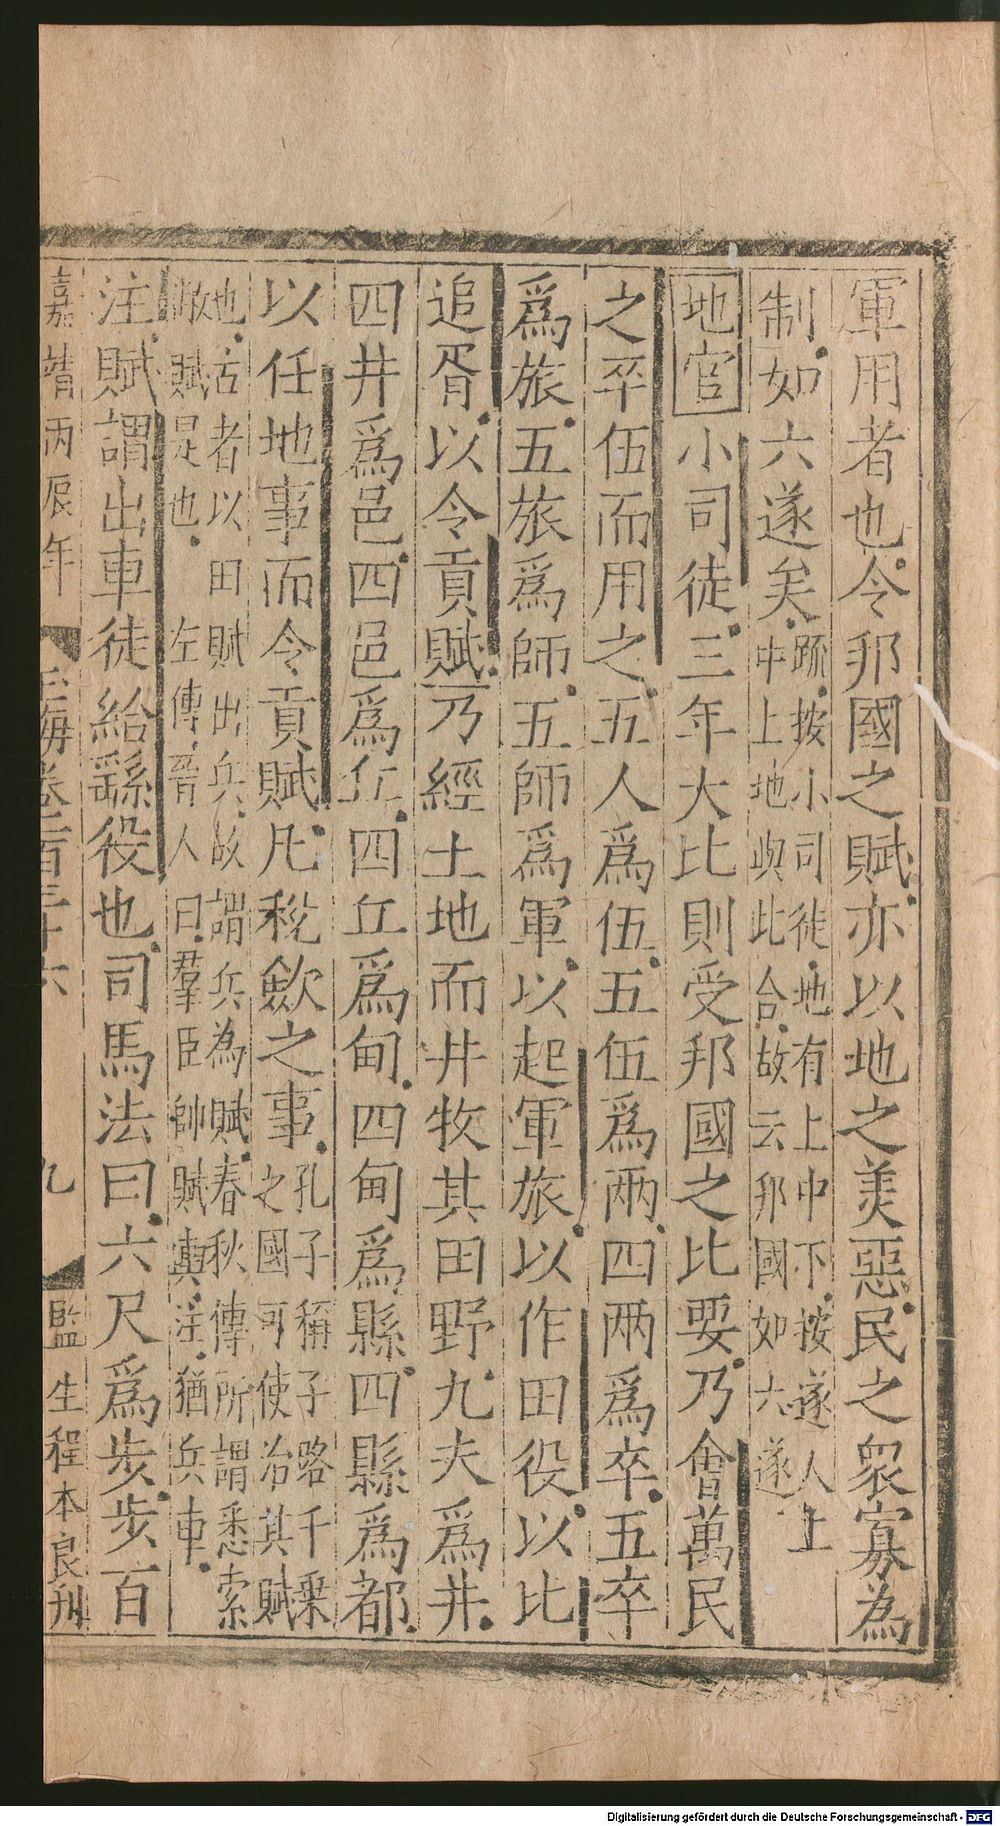 軍用者也令邦國之賦亦以地之美惡民之衆寡為
制如六遂矣疏按小司徒地有上中下按遂人上
中上地與此合故云邦國如六遂
地官小司徒三年大比則受邦國之比要乃會萬民
之卒伍而用之五人爲伍五伍爲兩四兩爲卒五卒
爲旅五旅爲師五師爲軍以起軍旅以作田役以比
追胥以令貢賦乃經土地而井牧其田野九夫爲井
四井爲邑四邑爲丘四丘爲甸四甸爲縣四縣爲都
以任地事而令貢賦凡稅斂之事孔子稱子路千乗
之國可使治其賦
也古者以田賦出兵故謂兵為賦春秋傳所謂悉索
敝賦是也左傳晉人曰羣臣帥賦輿注猶兵車
注賦謂出車徒給繇役也司馬法曰六尺爲步步百
嘉靖丙辰年 玉海卷之百三十六 九 監生程本良刋
Digitalisierung gefördert durch die Deutsche Forschungsgemeinschaft - DFG